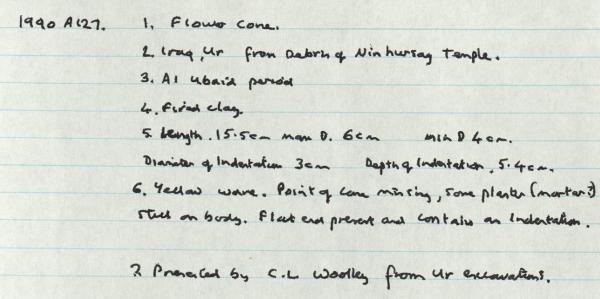 1990 A127. 1. Flower Cone.
2. Iraq, Ur from Debris of Ninhursag Temple.
3. Al Ubaid period
4. Fired clay.
5. Length. 15.5cm max D. 6cm min D 4cm.
Diameter of Indentation 3cm Depth of Indentation. 5.4cm.
6. Yellow ware. Point of Cone missing, some plaster (mortar?)
still on body. Flat end present and contains an Indentation.
7. Presented by C.L Woolley from Ur excavations.